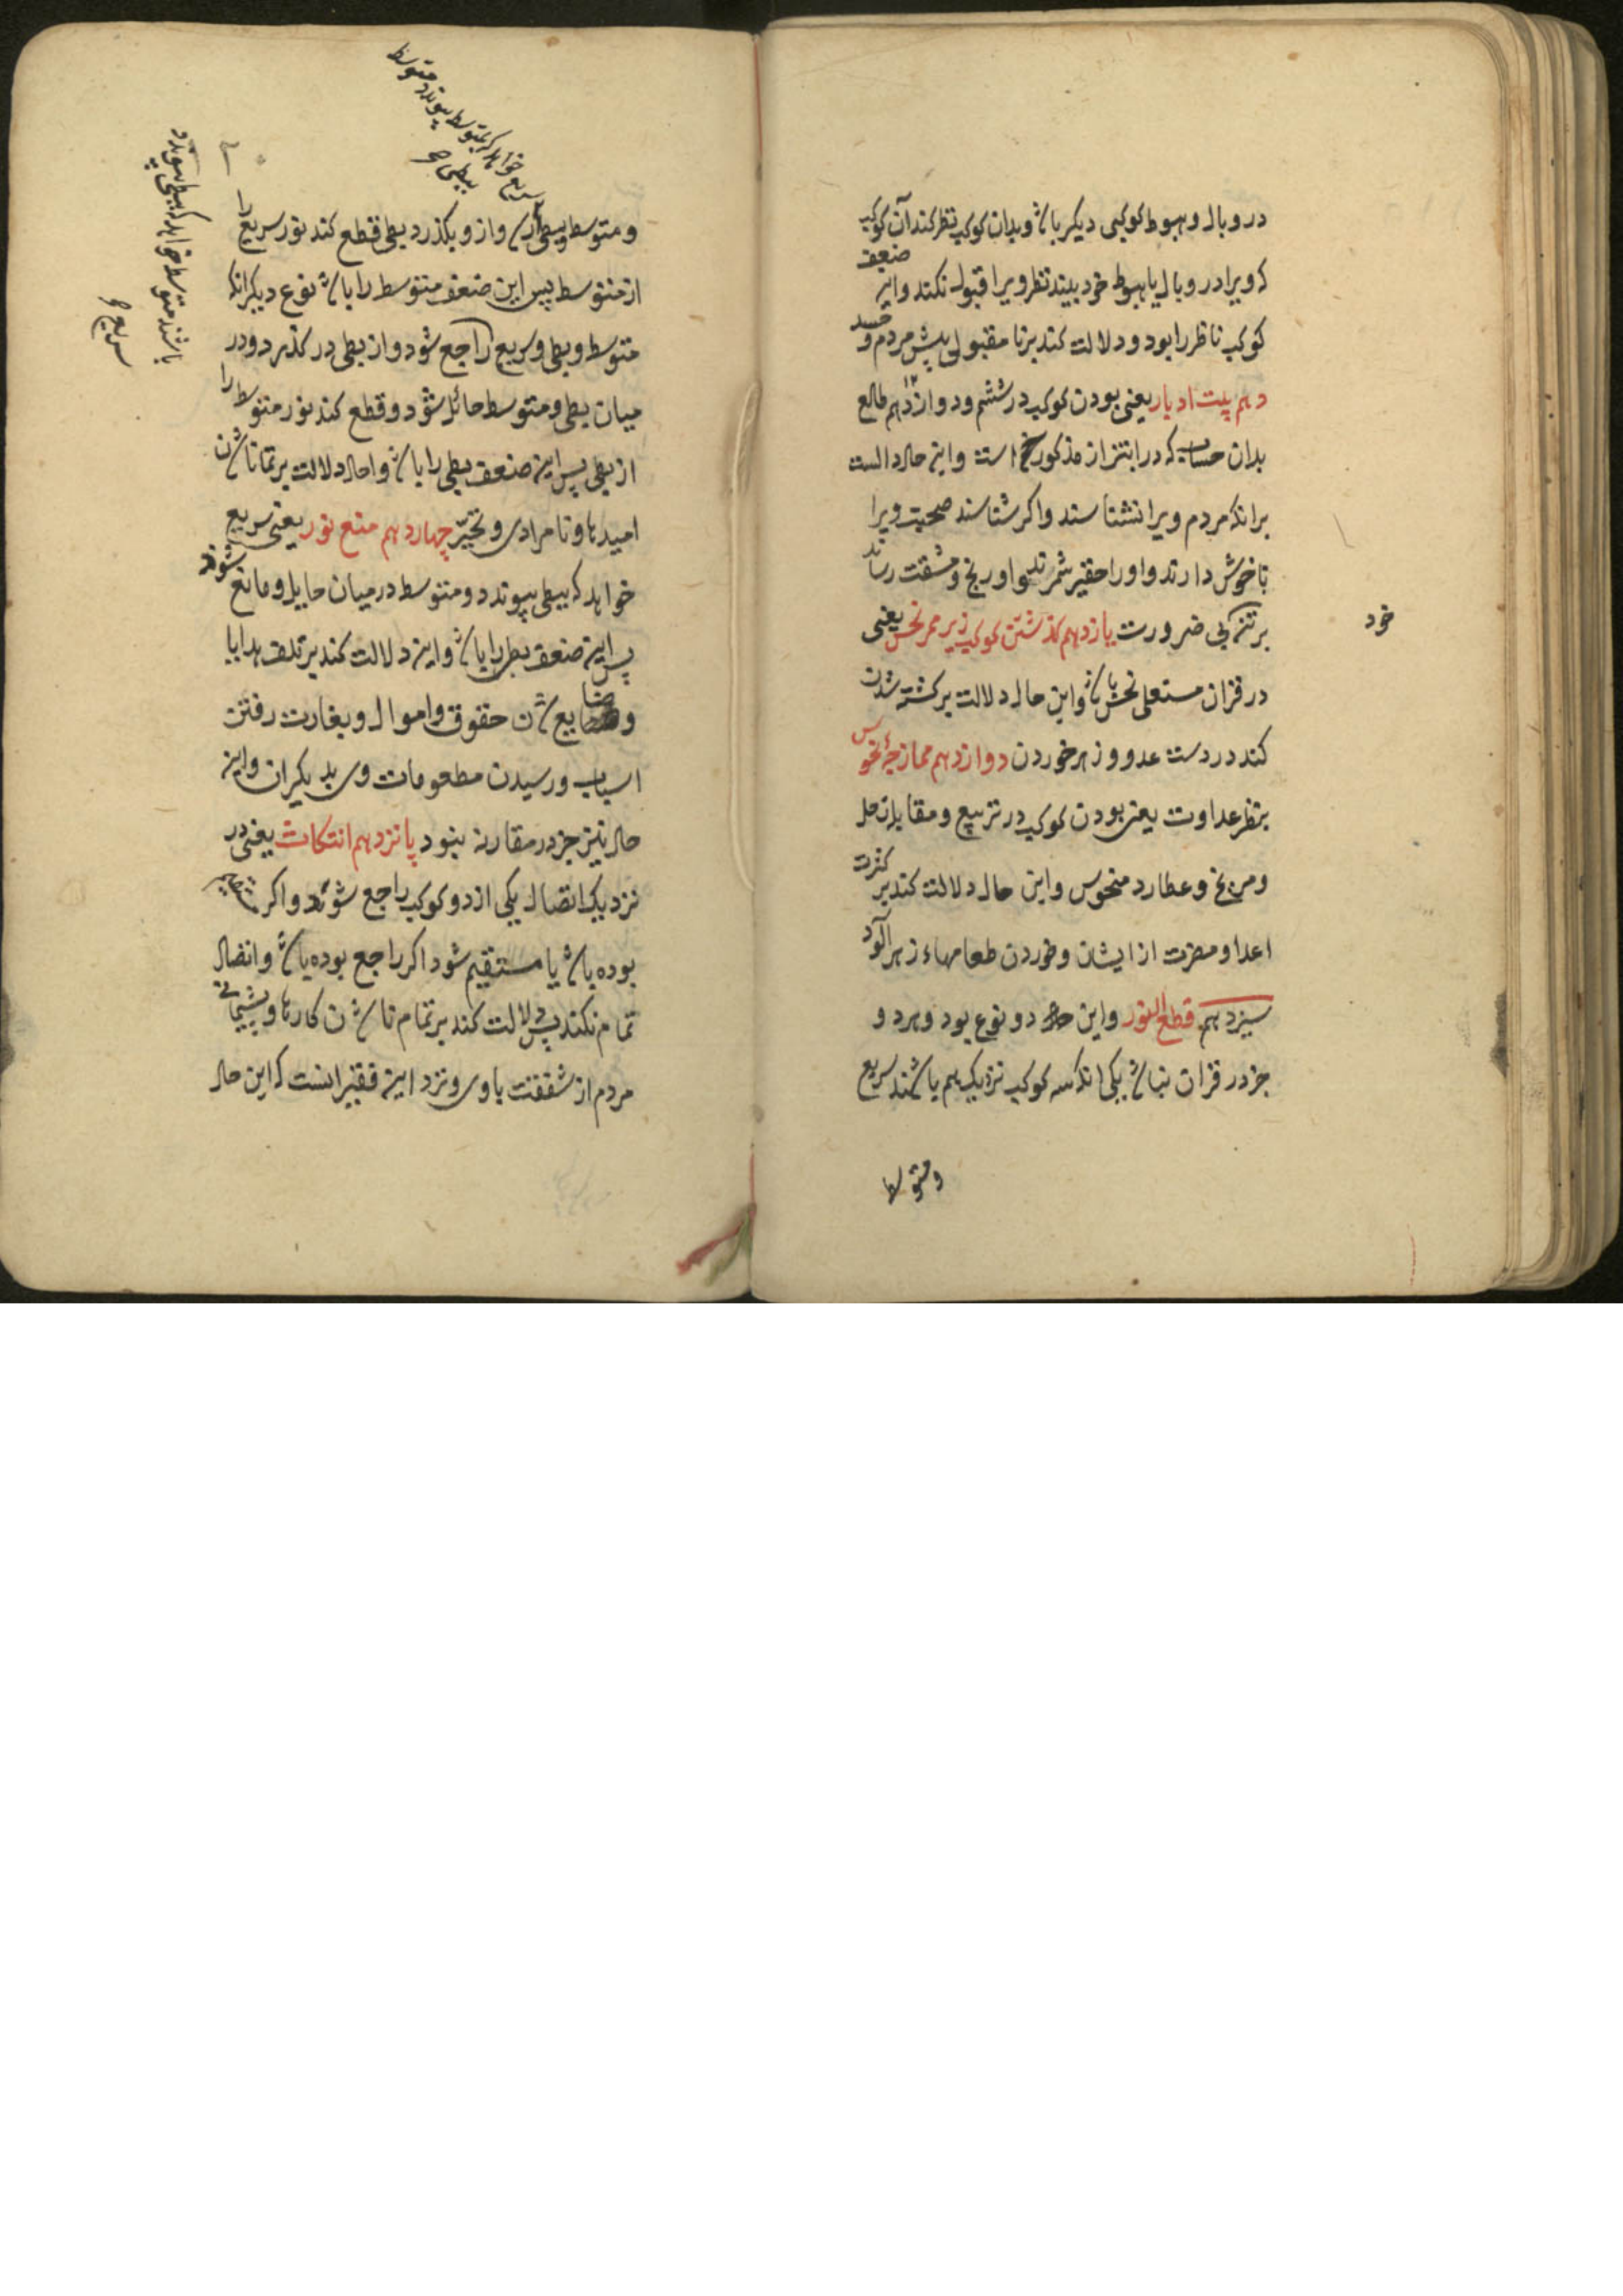 در وبال و هبوط کوکبی دیکر باشد و بدان کوکب نظر کند آن کوکب
که ویرا در وبال یا هبوط خود بیند نظر ویرا قبول نکند و این ضعیف
کوکب ناظر را بود و دلالت کند بر نا مقبولی پیش مردم و حسد
دهم بیت ادبار یعنی بودن کوکب در ششم و دوازدهم طالع ۱۲
بدان حساب که در ابتزاز مذکور است و این حال دالست
برانکه مردم ویرا نشناسند واکر شناسند صحبت ویرا
ناخوش دارند و او را حقیر شمرند و او رنج و مشقت رساند
بر تن بی ضرورت یازدهم کذشتن کوکب زیر ممر نحس یعنی
خود
در قران مستعلی نحس باشد و این حال دلالت بر کشته شدن
کند در دست عدو و زهر خوردن دوازدهم ممازجهٔ نحوس
بنظر عداوت یعنی بودن کوکب در تربیع و مقابله زحل
و مریخ و عطارد منحوس و این حال دلالت کند بر کثرت
اعدا و مضرت از ایشان و خوردن طعامهاء زهر آلود
سیزدهم قطع النور و این حال دو نوع بود و هر دو
جز در قران نباشد یکی انکه سه کوکب نزدیک هم باشند سریع
ومتوسط
سریع خواهد که بمتوسط پیوندد متوسط
ببطی
و متوسط وبطی واز و بکذرد بطی قطع کند نور سریع را
از متوسط پس این ضعف متوسط را باشد نوع دیکر انکه
متوسط و بطی و سریع راجع شود و از بطی در کذرد و در
میان بطی و متوسط حائل شود و قطع کند نور متوسط را
از بطی پس این ضعف بطی را باشد و احال دلالت بر تمانا شدن
امیدها و نامرادی و تحیّر چهاردهم منع نور یعنی سریع
خواهد که ببطی پیوندد و متوسط در میان حایل و مانع شود
پس این ضعف بطی را باشد و این دلالت کند بر تلف هدایا
و ضایع شدن حقوق و اموال و بغارت رفتن
اسباب و رسیدن مطعومات وی بدیکران و این
حال نیز جز در مقارنه نبود پانزدهم انتکاث یعنی در
نزدیک اتصال یکی از دو کوکب راجع شود واکر مستقیم
بوده باشد یا مستقیم شود اکر راجع بوده باشد و اتصال
تمام نکند پس دلالت کند بر تمام ناشدن کارها و پشیمانی
مردم از شفقت با وی و نزد این فقیر انست که این حال
باشند متوسط خواهد که ببطی پیوندد
سریع